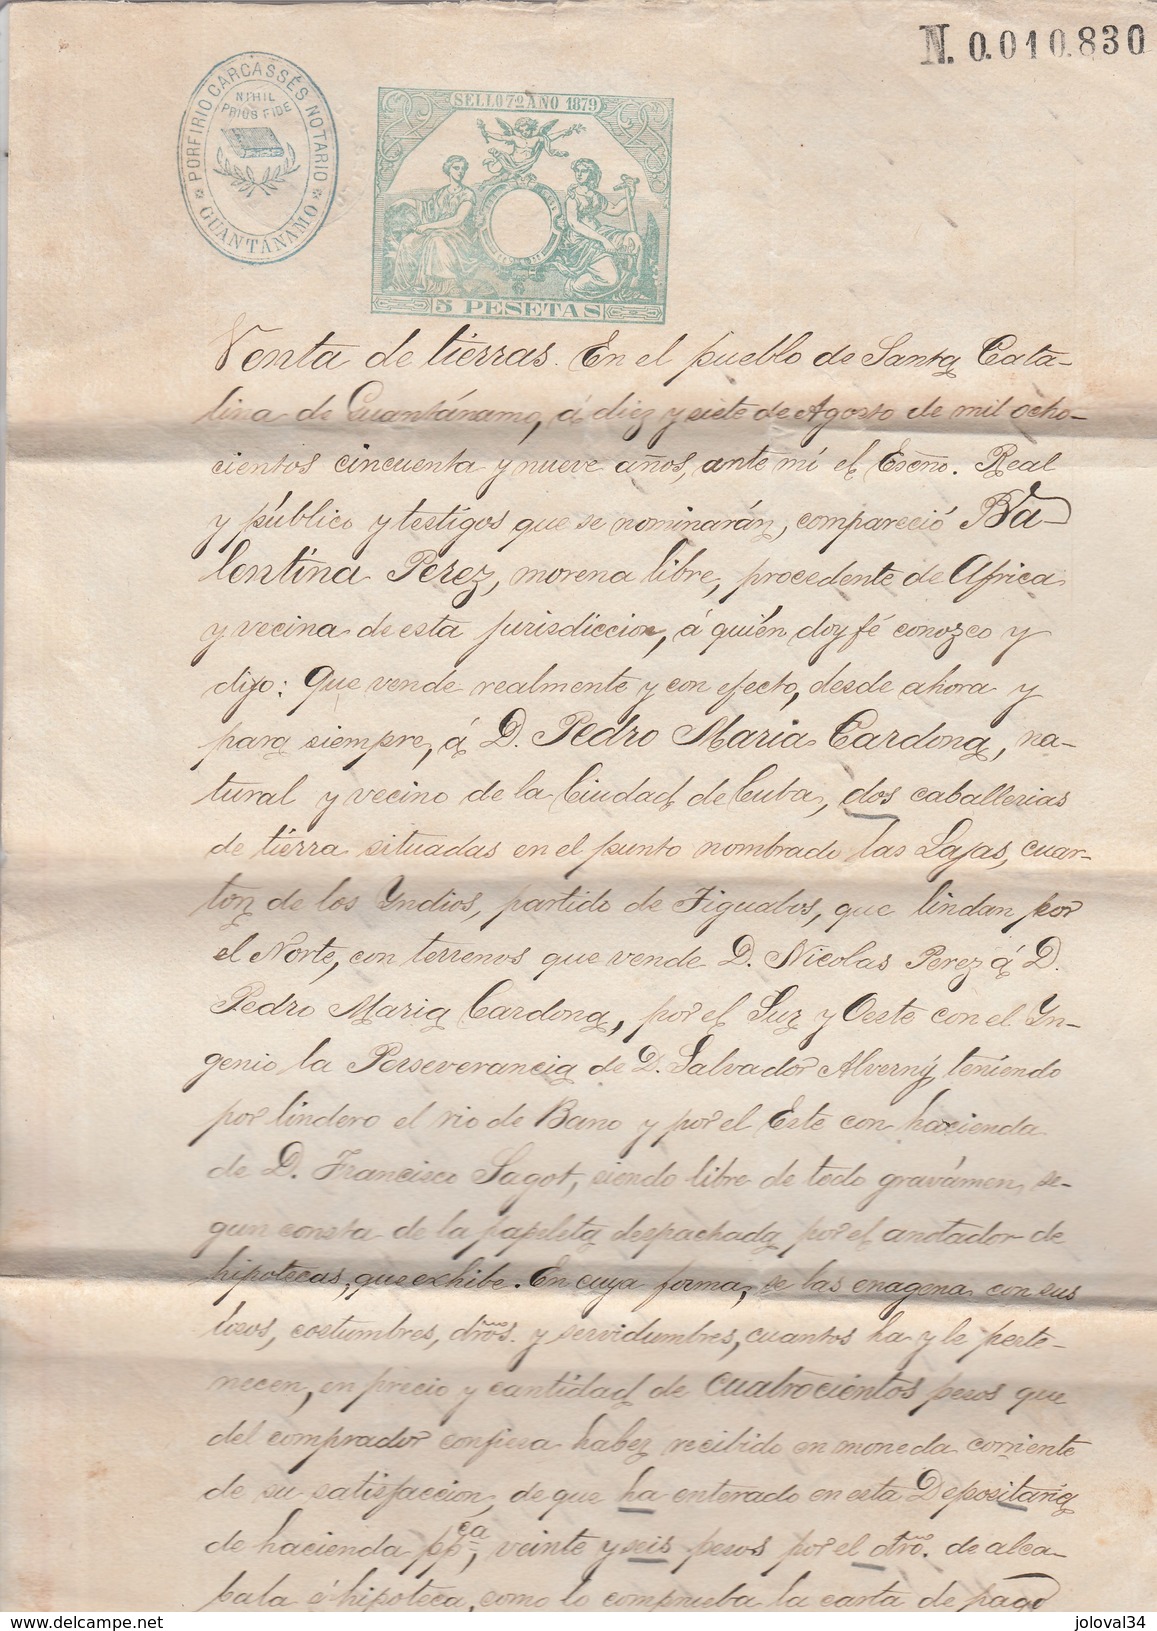 N. 0.010.830
PORFIRIO CARCASSÉS NOTARIO
NIHIL
PRIUS FIDE
* GUANTÁNAMO *
SELLO 7º AÑO 1879
5 PESETAS
Venta de tierras. En el pueblo de Santa Cata-
lina de Guantánamo, á diez y siete de Agosto de mil ocho-
cientos cincuenta y nueve años, ante mí el Escno. Real
y público y testigos que se nominarán, compareció Ba-
lentina Perez, morena libre, procedente de Africa
y vecina de esta jurisdiccion, á quién doy fé conozco y
dijo: Que vende realmente y con efecto, desde ahora y
para siempre, á D. Pedro Maria Cardona, na-
tural y vecino de la Ciudad de Cuba, dos caballerias
de tierra situadas en el punto nombrado las Lajas, cuar-
ton de los Yndios, partido de Tiguabos, que lindan por
el Norte, con terrenos que vende D. Nicolas Perez á D.
Pedro Maria Cardona, por el Sur y Oeste con el Yn-
genio la Perseverancia de D. Salvador Alverny, teniendo
por lindero el rio de Bano y por el Este con hacienda
de D. Francisco Sagot, siendo libre de todo gravámen, se-
gun consta de la papeleta despachada por el anotador de
hipotecas, que exhibe. En cuya forma, se las enagena con sus
úsos, costumbres, dros. y servidumbres, cuantos ha y le perte-
necen, en precio y cantidad de cuatrocientos pesos que
del comprador confiesa haber recibido en moneda corriente
de su satisfaccion, de que ha enterado en esta Depositaria
de hacienda ppca, veinte y seis pesos por el dro. de alca-
bala é hipoteca, como lo comprueba la carta de pago
joloval34